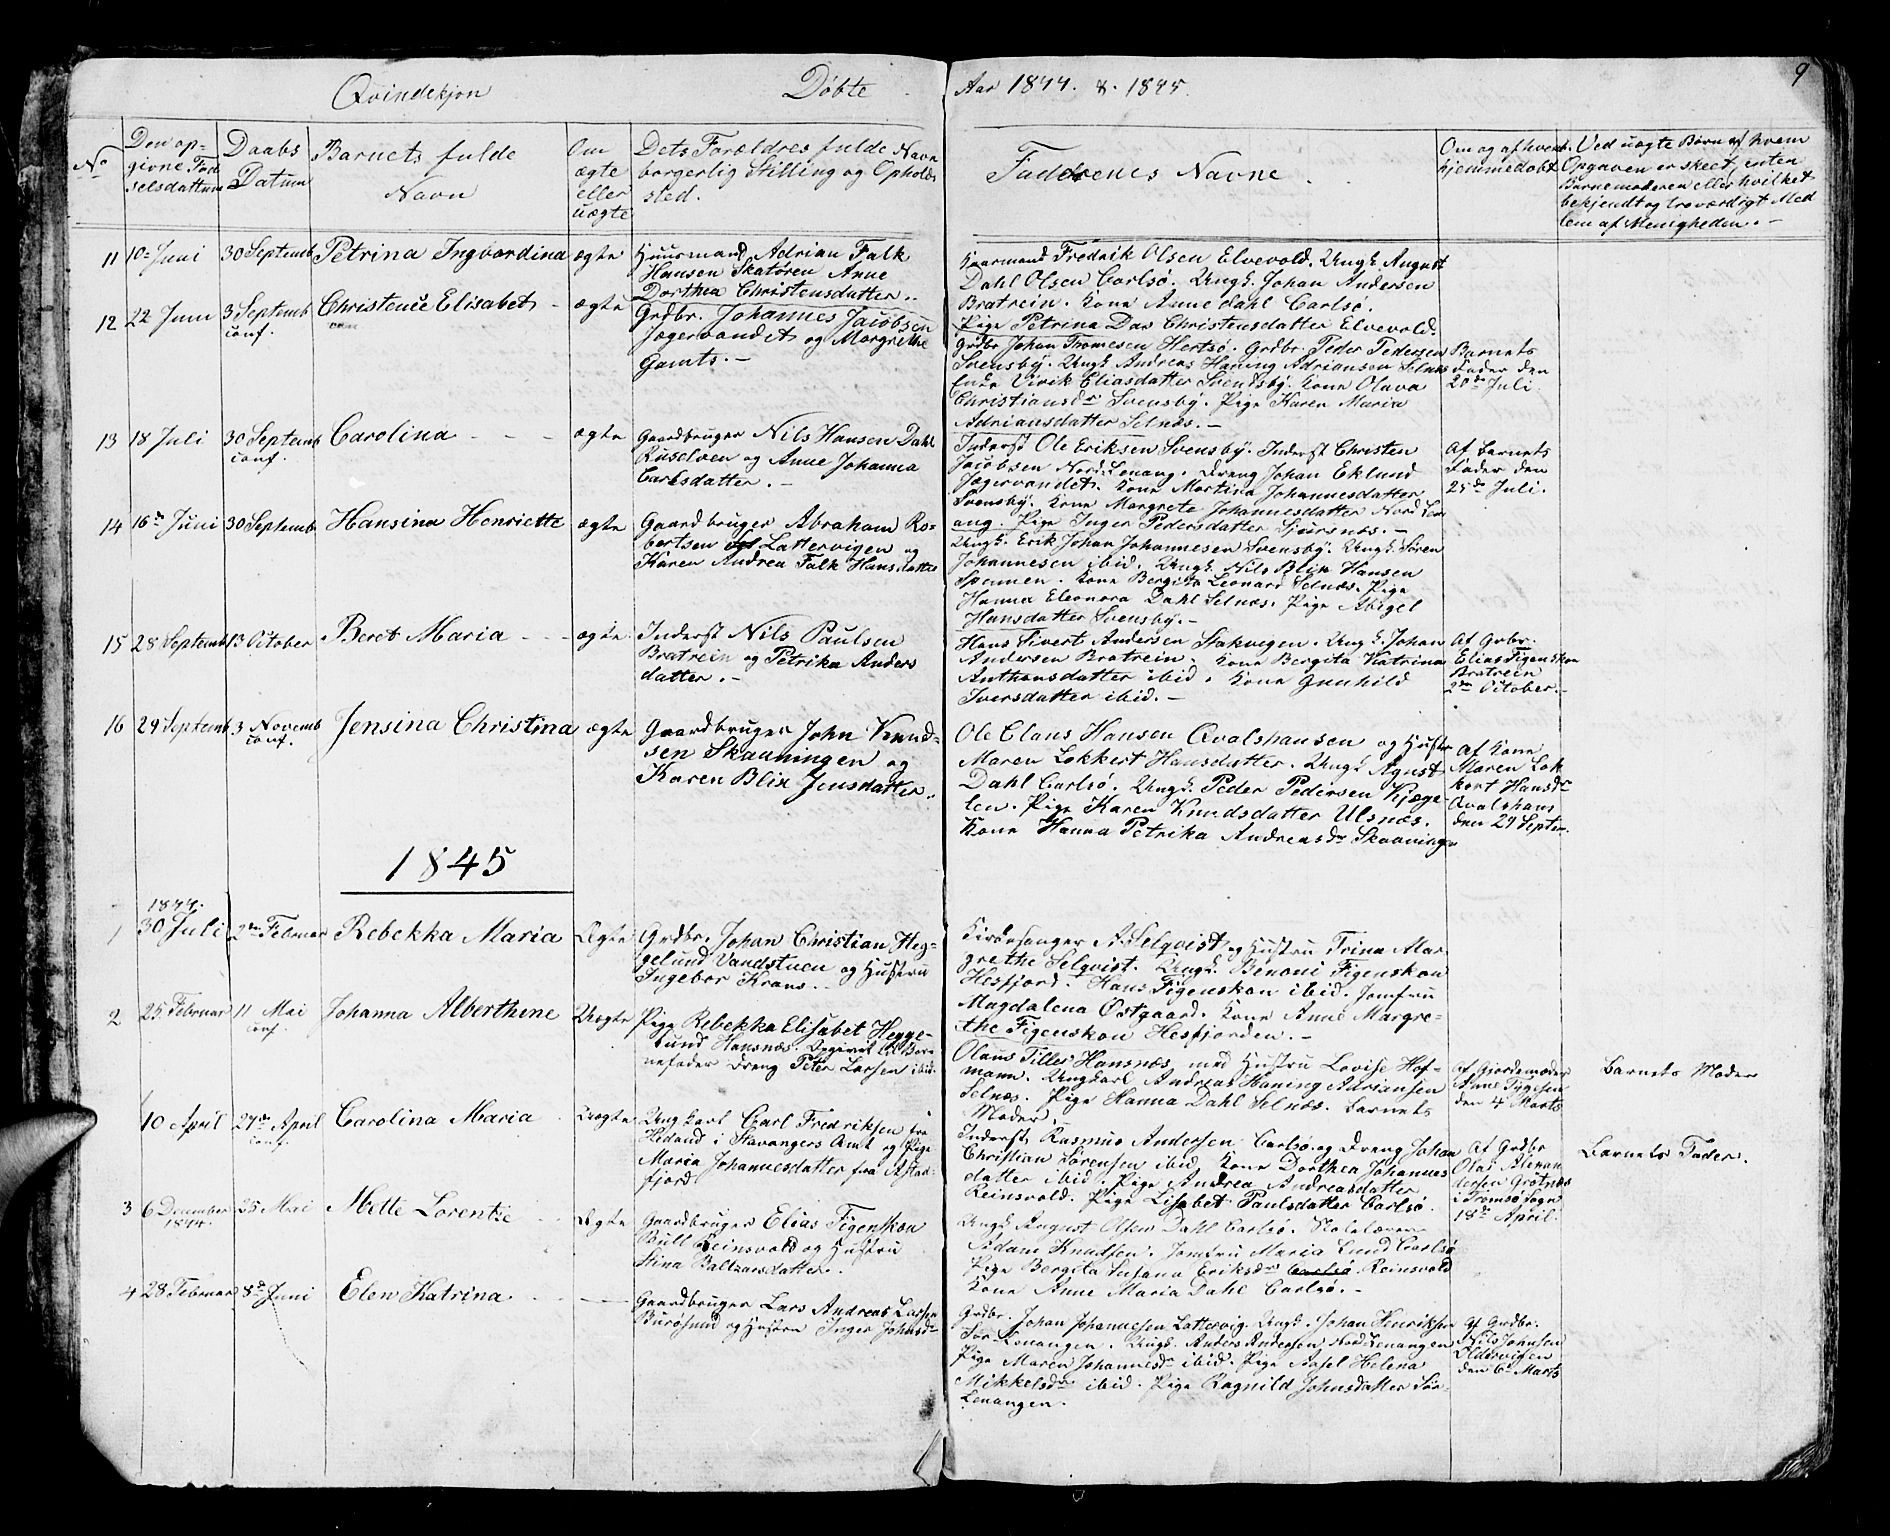 Qvindekjøn Døbte Aar 1844. & 1845. 9
No
Den op-
givne Fød
selsdattum
Daabs
Datum
Barnets fulde
Navn
Om
ægte
eller
uægte
Dets Forældres fulde Navn
borgerlig Stilling og Opholds
sted.
Faddrenes Navne
Om og af hvem
hjemmedøbt
Ved uægte Børn af hvem
Opgaven er skeet, enten
Barnemoderen eller hvilket
bekjendt og troværdigt Med
lem af Menigheden. -
11 10de Juni 30 Septemb Petrina Ingvardina ægte
Huusmand Adrian Falk
Hansen Skatøren Anne
Dorthea Christensdatter.
Fredrik Olsen Elvevold. Ungk. August
Dahl Olsen Carlsø. Ungk. Johan Andersen
Bratrein. Kone Anne Dahl Carlsø.
Pige Petrina Das Christensdatter Elvevold.
12 22 Juni 3 Septemb
conf.
Christence Elisabet - ægte
Grdbr. Johannes Jacobsen
Jægervandet og Margrethe
Gamts. -
Grdbr Johan Tromesen Hertsø. Grdbr. Peder Pedersen
Svensby. Ungk Andreas Haning Adriansen Selnæs
Enke Virik Eliasdatter Svendsby. Kone Olava
Christiansdr Svensby. Pige Karen Maria
Adriansdatter Selnæs. -
Barnets
Fader den
20de Juli.
13 18 Juli 30 Septemb
conf.
Carolina - - - ægte
Gaardbruger Nils Hansen Dahl
Russelven og Anne Johanna
Carlsdatter. -
Inderst Ole Eriksen Svensby. Inderst Christen
Jacobsen Nord Lenang. Dreng Johan Eklund
Jægervandet. Kone Martina Johannesdatter
Svensby. Kone Margrete Johannesdatter Nord Len
ang. Pige Inger Pedersdatter Sjursnæs. -
Af Barnets
Fader den
25de Juli.
14 16de Juni 30 Septemb Hansina Henriette ægte
Gaardbruger Abraham Ro-
bertsen Lattervigen og
Karen Andrea Falk Hansdatter
Ungk. Erik Johan Johannesen Svensby. Ungk. Søren
Johannesen ibid. Ungk. Nils Blix Hansen
Spennen. Kone Bergita Leonard Selnæs. Pige
Hanna Eleonora Dahl Selnæs. Pige Abigel
Hansdatter Svensby. -
15 28 Septemb 13 October Beret Maria - - - ægte
Inderst Nils Paulsen
Bratrein og Petrika Anders
datter. -
Hans Sivert Andersen Stakvigen. Ungk. Johan
Andersen Bratrein. Kone Bergita Katrina
Anthonsdatter ibid. Kone Gunhild
Iversdatter ibid. -
Af Grbr.
Elias Figenskou
Bratrein
2den October. -
16 29 Septemb 3 Novemb
conf.
Jensina Christina ægte
Gaardbruger John Knud-
sen Skaaningen og
Karen Blix Jensdatter.
Ole Claus Hansen Qvalshausen og Hustru
Maren Lokkert Hansdatter. Ungk. Agust
Dahl Carlsø. Ungk. Peder Pedersen Kjæge-
len. Pige Karen Knudsdatter Ulsnæs.
Kone Hanna Petrika Andreasdr Skaaningen
Af Kone
Maren Lok
kert Hansdr
Qvalshaus
den 29 Septbr.
1845
1844.
1 30 Juli 2den Februar Rebekka Maria Ægte
Grdbr. Johan Christian Heg-
gelund Vandstuen og Hustru
Ingebor Krans. -
Kirkesanger A. Selqvist og Hustru Trina Mar-
grethe Selqvist. Ungk. Benoni Figenskou
Hesfjord. Hans Figenskou ibid. Jomfru
Magdalena Østgaard. Kone Anne Margre-
the Figenskou Hesfjorden. -
2 25 Februar 11 Mai
conf.
Johanna Alberthine Uægte
Pige Rebekka Elisabet Hegge-
lund Hansnæs. Opgivet til Bar-
nefader Dreng Peter Larsen ibid.
Olaus Tilles Hansnæs med Hustru Lovise Hof-
mann. Ungkarl Andreas Haning Adriansen
Selnæs. Pige Hanna Dahl Selnæs. Barnets
Moder.
Af Gjordemoder
Anne Tygesen
den 4 Marts
Barnets Moder
10 April 27de April
conf.
Carolina Maria - Uægte
Ungkarl Carl Fredriksen fra
i Stavangers Amt og Pige
Maria Johannesdatter fra
fjord
Inderst Rasmus Andersen Carlsø og Dreng Johan
Christian Sørensen ibid. Kone Dorthea Johannes
datter ibid. Pige Andrea Andreasdatter
Reinsvold. Pige Lisabet Paulsdatter Carlsø.
Af Grdbr
Olas Alexan
dersen Grøtnæs
i Tromsø Sogn
18de April.
Barnets Fader.
3 6 December
1844.
25 Mai Mette Lorentse - - Ægte
Gaardbruger Elias Figenskou
Bull Reinsvold og Hustru
Stina Baltzarsdatter.
Ungk August Olsen Dahl Carlsø. Skolelærer
Adam Knudsen. Jomfru Maria Lund Carlsø
Pige Bergita Susana Eriksdr Carlsø Reinsvold
Kone Anne Maria Dahl Carlsø. -
4 28 Februar 8de Juni Elen Katrina - - -
Gaardbruger Lars Andreas Larsen
Burøsund og Hustru Inger Johnsdr
Grdbr. Johan Johannesen Lattervig. Ungk. Johan Henriksen
Sør-Lenangen. Ungk. Anders Andersen Nord Lenangen
Pige Maren Johannesdr ibid. Pige Aasel Helena
Mikkelsdr ibid. Pige Ragnild Johnsdatter Sør-
Lenangen.
Af Grdbr.
Nils Johnsen
Oldervigen
den 6te Marts